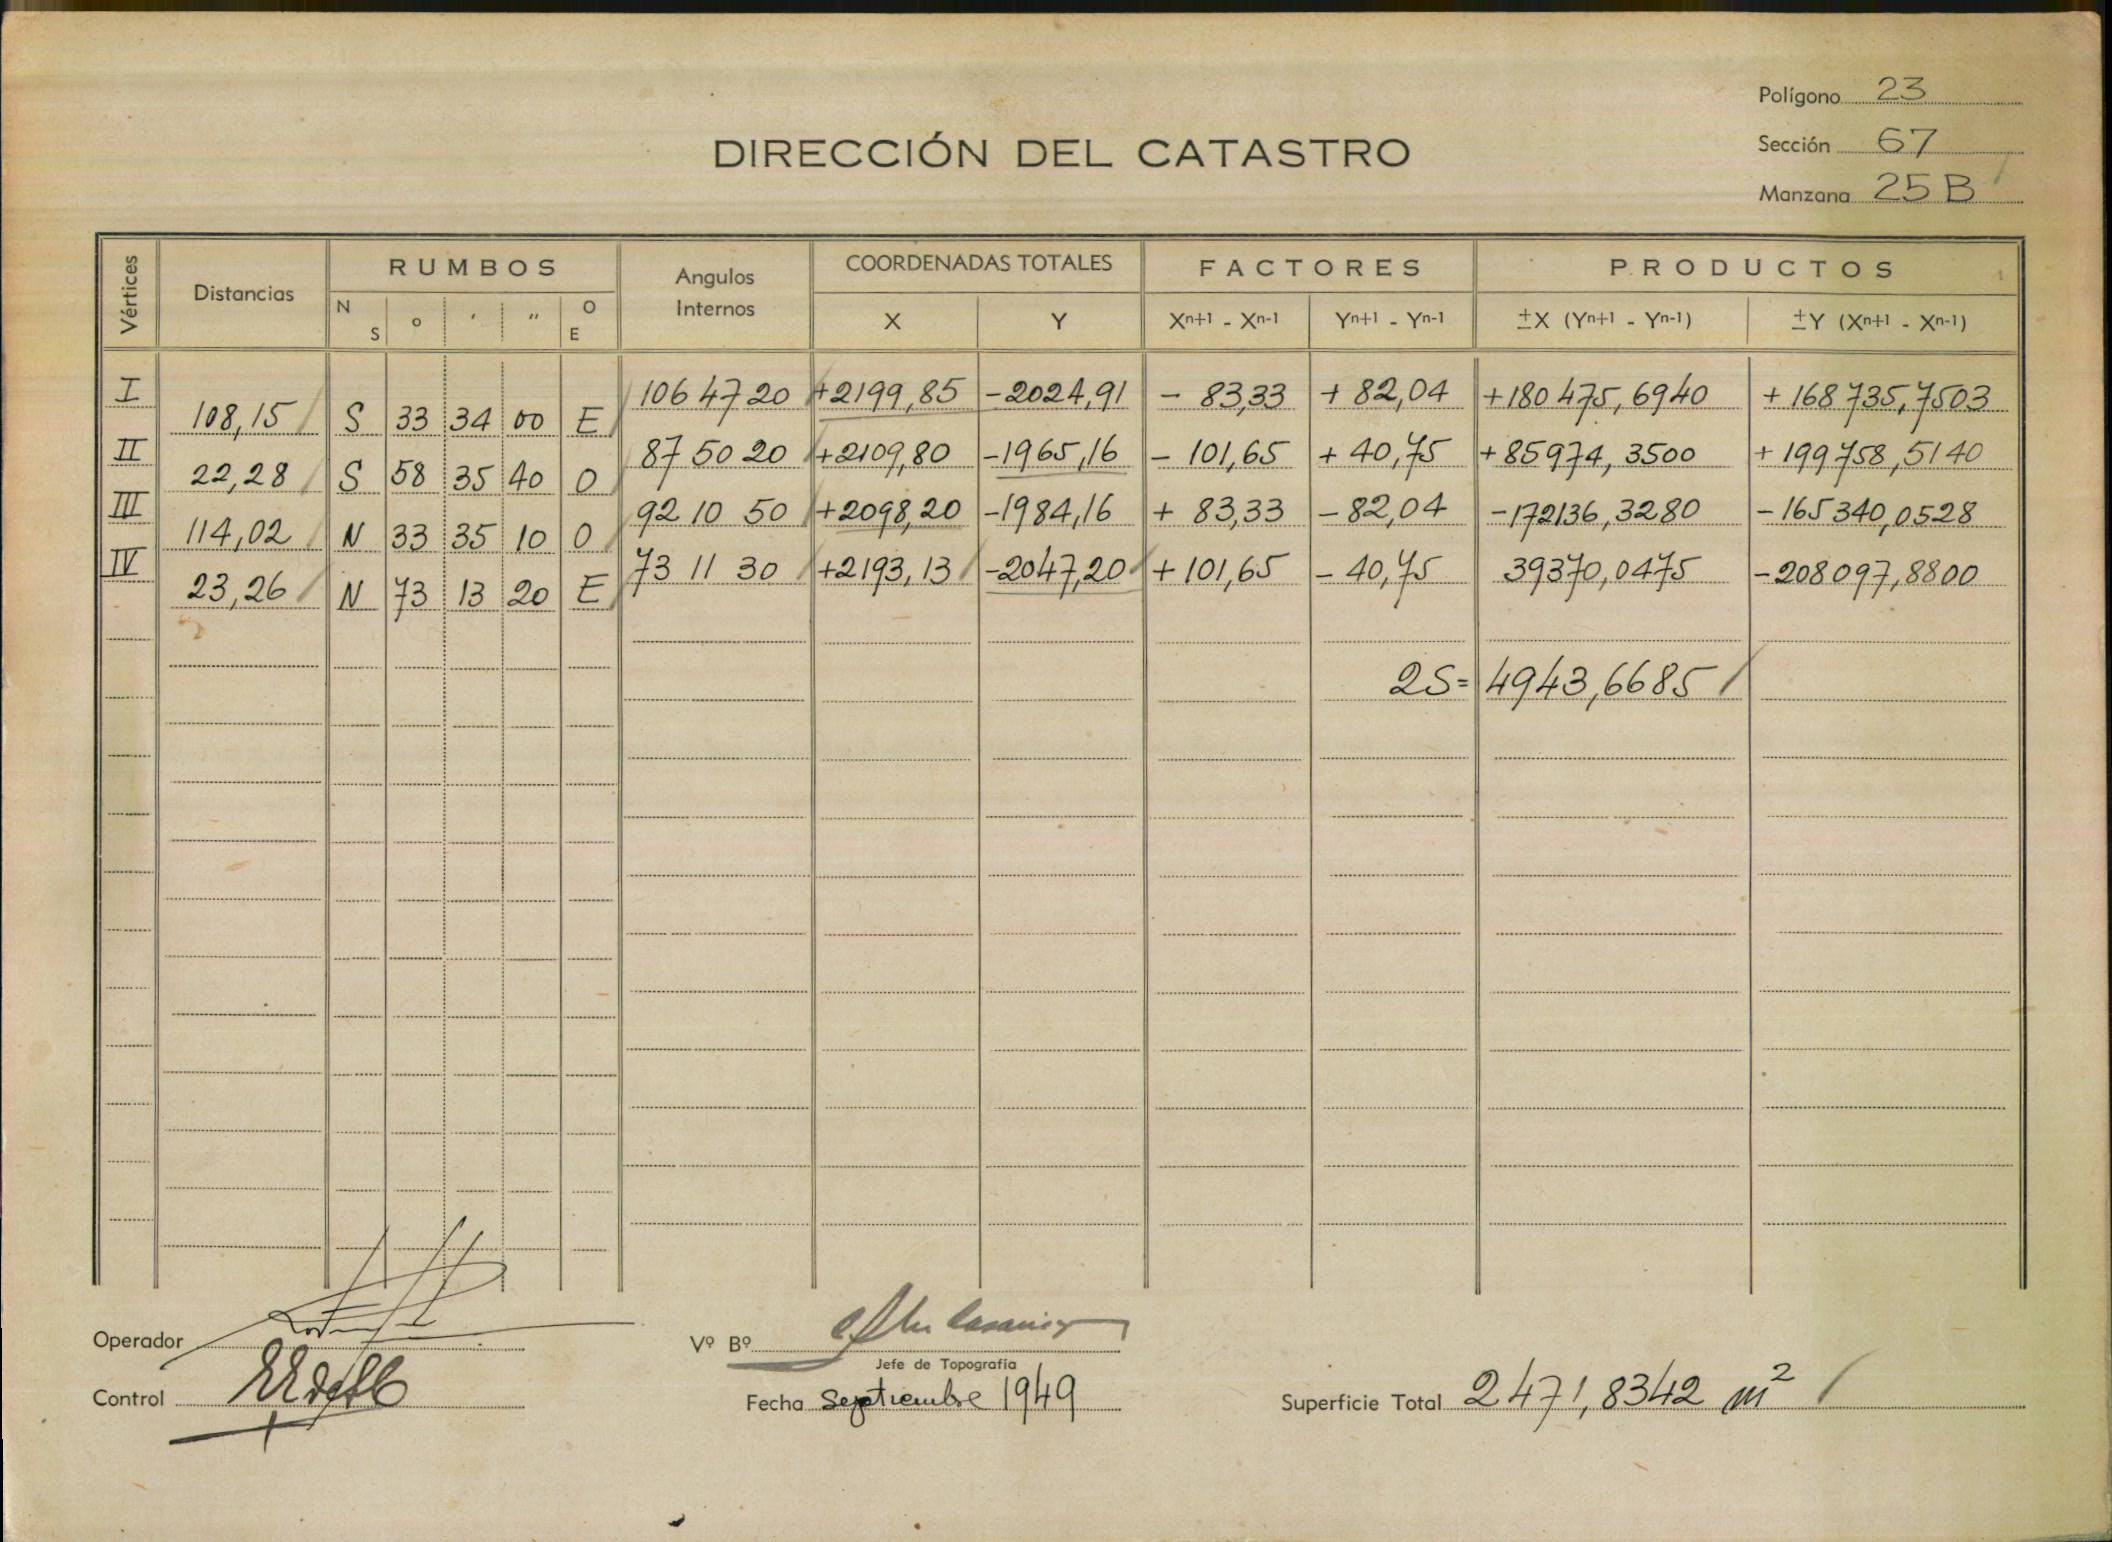 Polígono 23
DIRECCIÓN DEL CATASTRO
Sección 67
Manzana 25 B
Vértices Distancias RUMBOS Angulos Internos COORDENADAS TOTALES FACTORES PRODUCTOS
N S ° ' " O E X Y Xn+1 - Xn-1 Yn+1 - Yn-1 ±X (Yn+1 - Yn-1) ±Y (Xn+1 - Xn-1)
I 106 47 20 +2199,85 -2024,91 - 83,33 + 82,04 +180 475,6940 + 168 735,7503
108,15 S 33 34 00 E
II 87 50 20 +2109,80 -1965,16 - 101,65 + 40,75 +85974,3500 + 199758,5140
22,28 S 58 35 40 O
III 92 10 50 +2098,20 -1984,16 + 83,33 - 82,04 -172136,3280 - 165340,0528
114,02 N 33 35 10 O
IV 73 11 30 +2193,13 -2047,20 + 101,65 - 40,75 39370,0475 -208097,8800
23,26 N 73 13 20 E
2S= 4943,6685
Operador
Vº Bº
Jefe de Topografía
Control
Fecha septiembre 1949
Superficie Total 2471,8342 m²